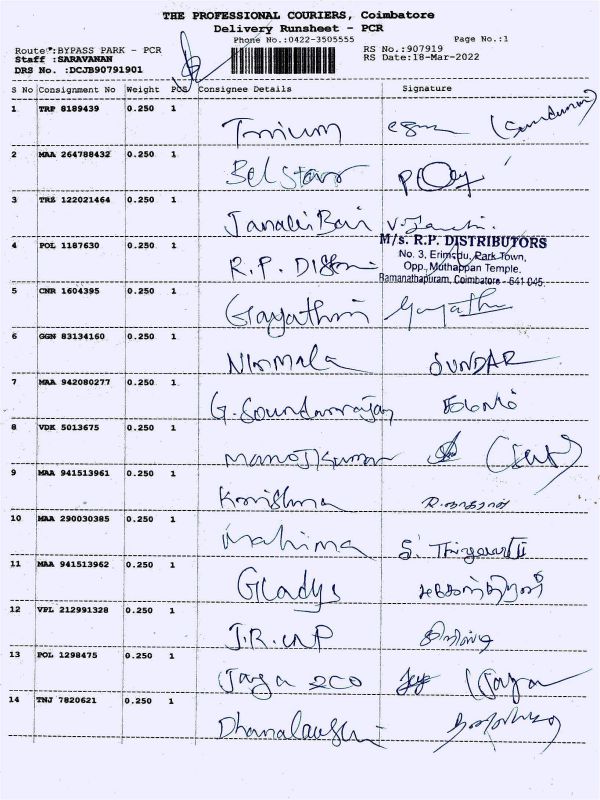 THE PROFESSIONAL COURIERS, Coimbatore
Delivery Runsheet - PCR
Phone No.:0422-3505555 Page No.:1
Route :BYPASS PARK - PCR RS No.:907919
Staff :SARAVANAN RS Date:18-Mar-2022
DRS No. :DCJB90791901
S No Consignment No Weight PCS Consignee Details Signature
1 TRP 8189439 0.250 1
2 MAA 264788432 0.250 1 Belstar
3 TRZ 122021464 0.250 1 Janaki Bai V. Janaki.
4 POL 1187630 0.250 1 R.P. M/s. R.P. DISTRIBUTORS
No. 3, Erimedu, Park Town,
Opp. Muthappan Temple,
Ramanathapuram, Coimbatore - 641 045.
5 CNR 1604395 0.250 1 Gayathri Gayathri
6 GGN 83134160 0.250 1 Nirmala SUNDAR
7 MAA 942080277 0.250 1 G. Soundarrajan
8 VDK 5013675 0.250 1 Manoj Kumar
9 MAA 941513961 0.250 1 Krishna
10 MAA 290030385 0.250 1 Mahima S.
11 MAA 941513962 0.250 1 Gladys
12 VPL 212991328 0.250 1 J.R.
13 POL 1298475 0.250 1 Jaya Jaya
14 TNJ 7820621 0.250 1